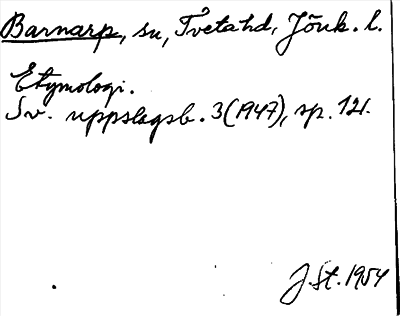 Barnarp, sn, Tveta hd, Jönk. l.
Etymologi.
Sv. uppslagsb. 3(1947), sp. 121.
J. St. 1954